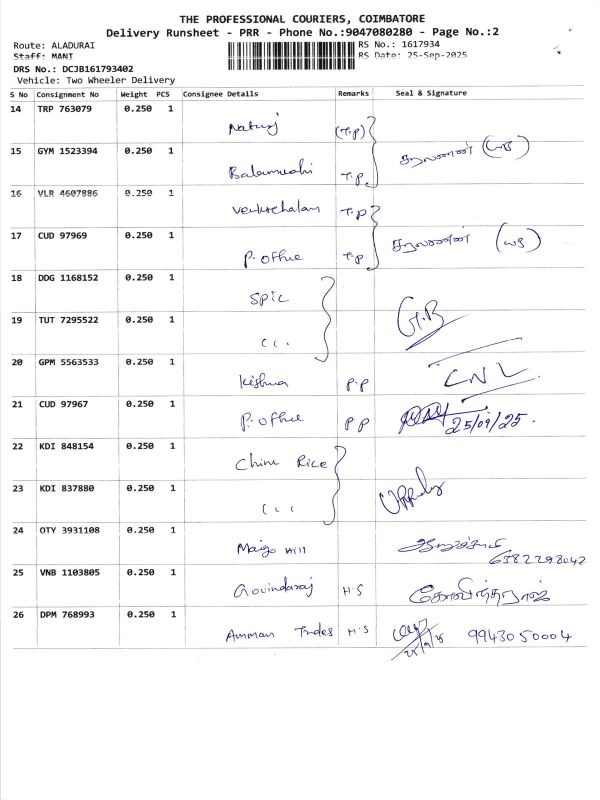 THE PROFESSIONAL COURIERS, COIMBATORE
Delivery Runsheet - PRR - Phone No.:9047080280 - Page No.:2
Route: ALADURAI RS No.: 1617934
Staff: MANI RS Date: 25-Sep-2025
DRS No.: DCJB161793402
Vehicle: Two Wheeler Delivery
S No Consignment No Weight PCS Consignee Details Remarks Seal & Signature
14 TRP 763079 0.250 1 (T.P)
15 GYM 1523394 0.250 1 T.P சரவணன்
16 VLR 4607886 0.250 1 T.P
17 CUD 97969 0.250 1 P. office T.P சரவணன்
18 DDG 1168152 0.250 1 SPIC
19 TUT 7295522 0.250 1 G.B
20 GPM 5563533 0.250 1 P.P CNL
21 CUD 97967 0.250 1 P. office PP 25/09/25.
22 KDI 848154 0.250 1 Rice
23 KDI 837880 0.250 1
24 OTY 3931108 0.250 1 6382298042
25 VNB 1103805 0.250 1 Govindaraj H.S கோவிந்தராஜ்
26 DPM 768993 0.250 1 Amman H.S 9943050004